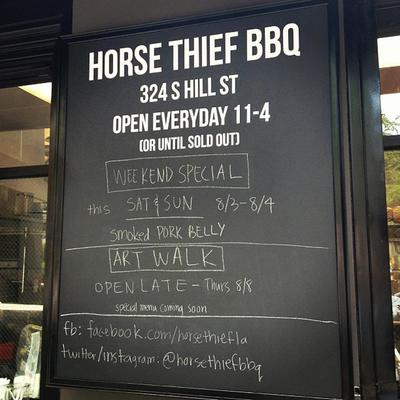 HORSE THIEF BBQ
324 S HILL ST
OPEN EVERYDAY 11-4
(OR UNTIL SOLD OUT)
WEEKEND SPECIAL
this SAT & SUN 8/3-8/4
smoked PORK BELLY
ART WALK
OPEN LATE - Thurs. 8/8
special menu coming soon
fb: facebook.com/horsethiefla
twitter/instagram: @horsethiefbbq